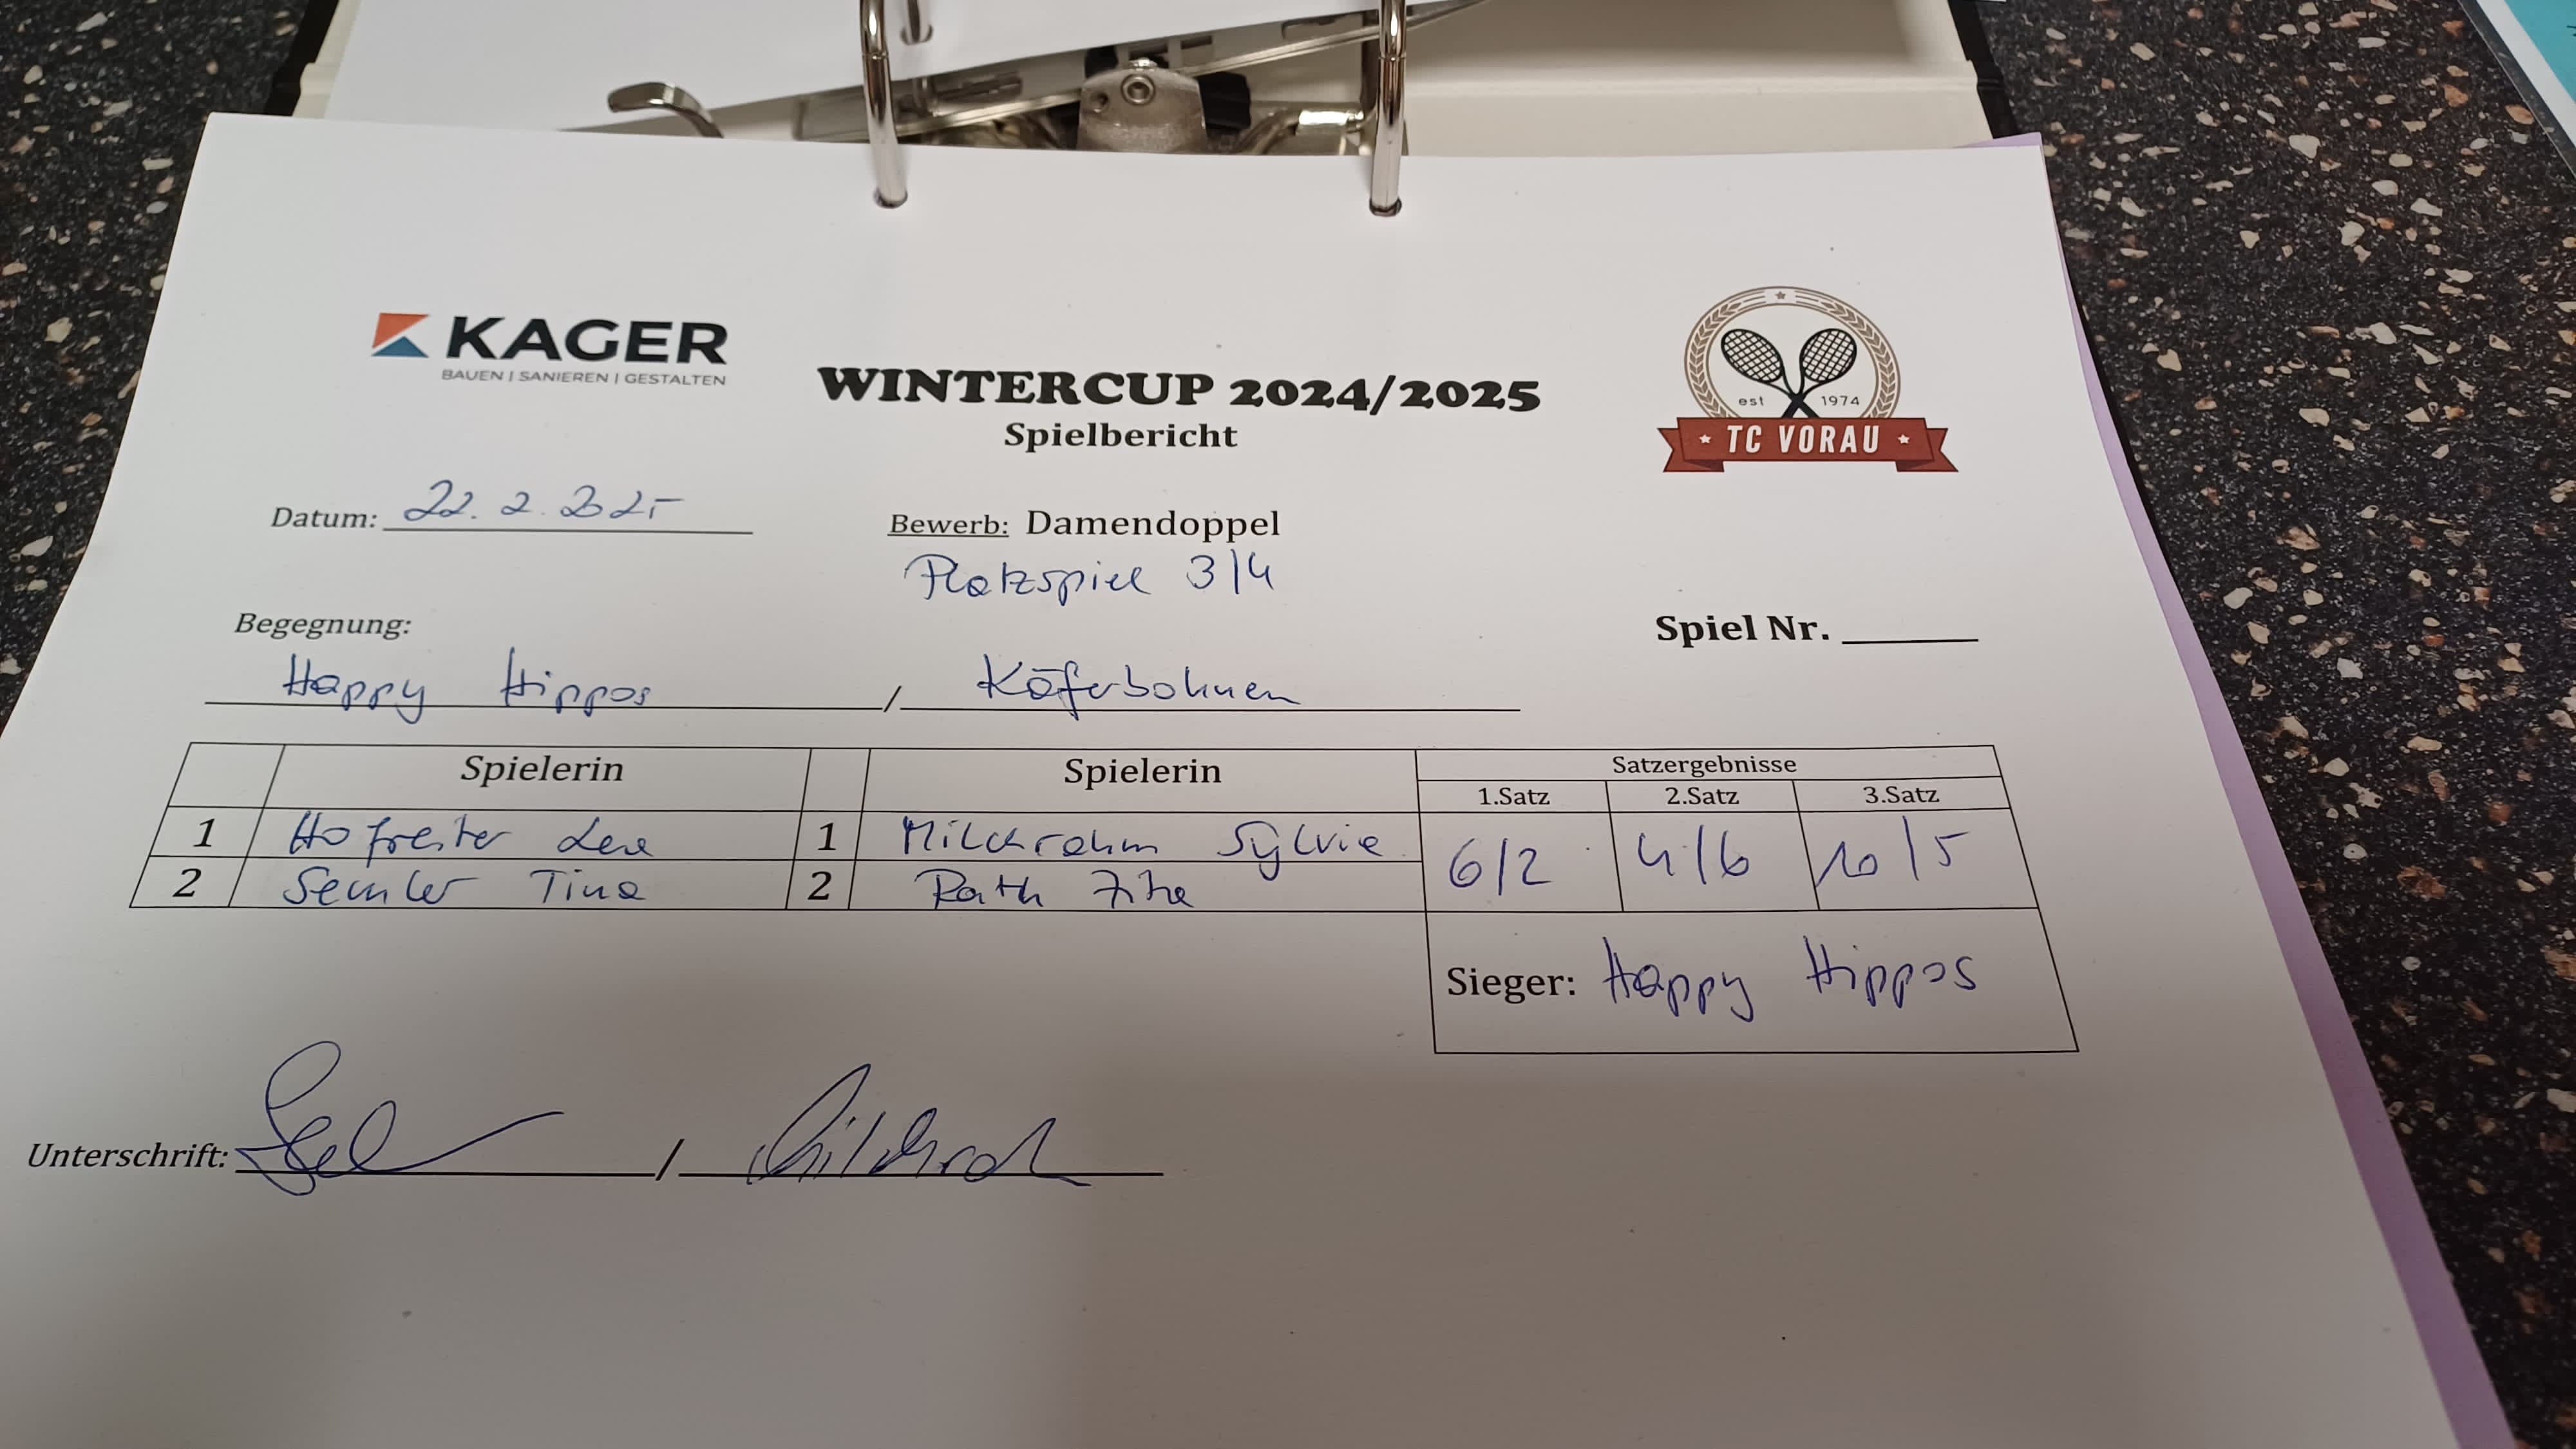 KAGER
BAUEN | SANIEREN | GESTALTEN
WINTERCUP 2024/2025
Spielbericht
est 1974
★ TC VORAU ★
Datum: 22. 2. 2025
Bewerb: Damendoppel
Platzspiel 3/4
Begegnung:
Spiel Nr.
Happy Hippos / Käferbohnen
Spielerin Spielerin Satzergebnisse
1.Satz 2.Satz 3.Satz
1 Hofreiter Lea 1 Milchrahm Sylvia
6/2 4/6 10/5
2 Semler Tina 2 Rath Zita
Sieger: Happy Hippos
Unterschrift: /